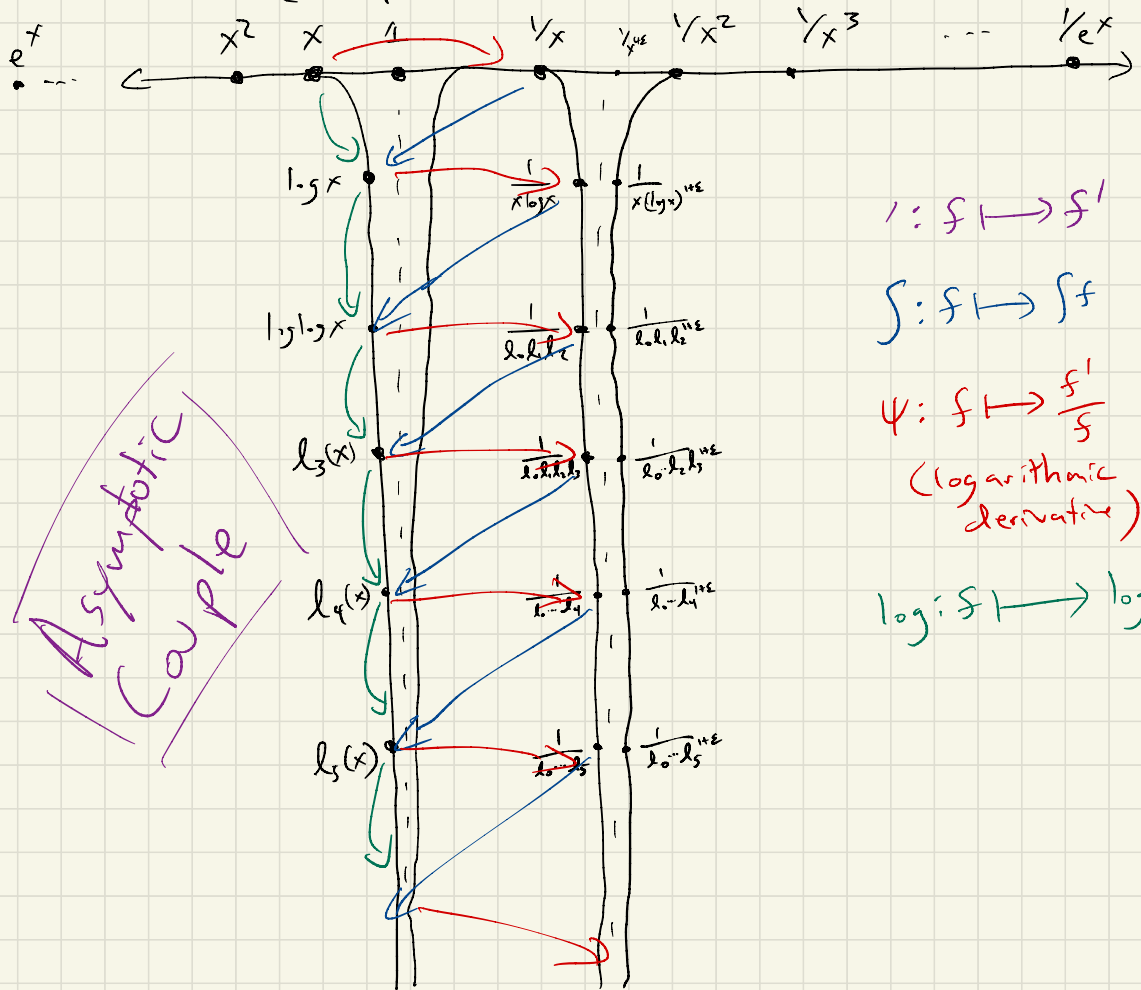 eˣ ... x² x 1 1/x 1/x^{1+ε} 1/x² 1/x³ ... 1/eˣ
log x 1/(x log x) 1/(x(log x)^{1+ε})
log log x 1/(l₀l₁l₂) 1/(l₀l₁l₂^{1+ε})
l₃(x) 1/(l₀l₁l₂l₃) 1/(l₀⋯l₂l₃^{1+ε})
l₄(x) 1/(l₀⋯l₄) 1/(l₀⋯l₄^{1+ε})
l₅(x) 1/(l₀⋯l₅) 1/(l₀⋯l₅^{1+ε})
Asymptotic
Couple
′: f ⟼ f′
∫: f ⟼ ∫f
ψ: f ⟼ f′/f
(logarithmic
derivative)
log: f ⟼ log